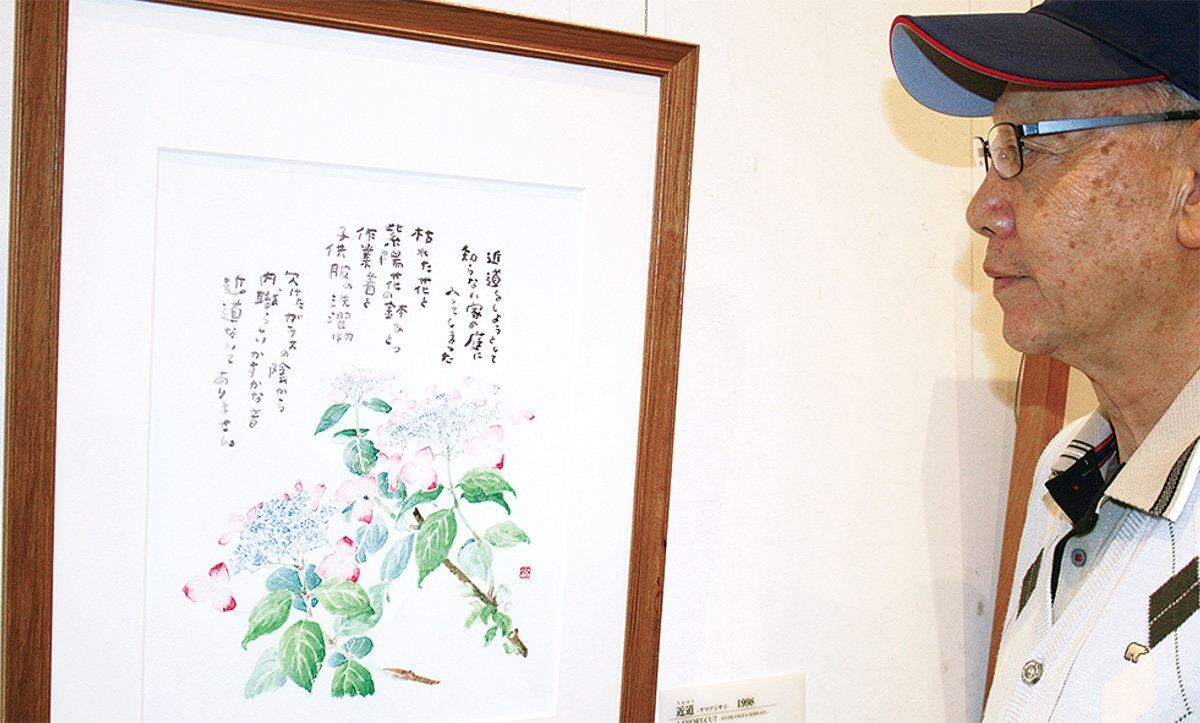 近道をしようとして
知らない家の庭に
入ってしまった
枯れた花と
紫陽花の鉢ひとつ
作業着と
子供服の洗濯物
欠けたガラスの陰から
内職らしいかすかな音
近道なんて
ありません。
近道 ヤマアジサイ 1998
A SHORT-CUT HYDRANGEA SERRATA